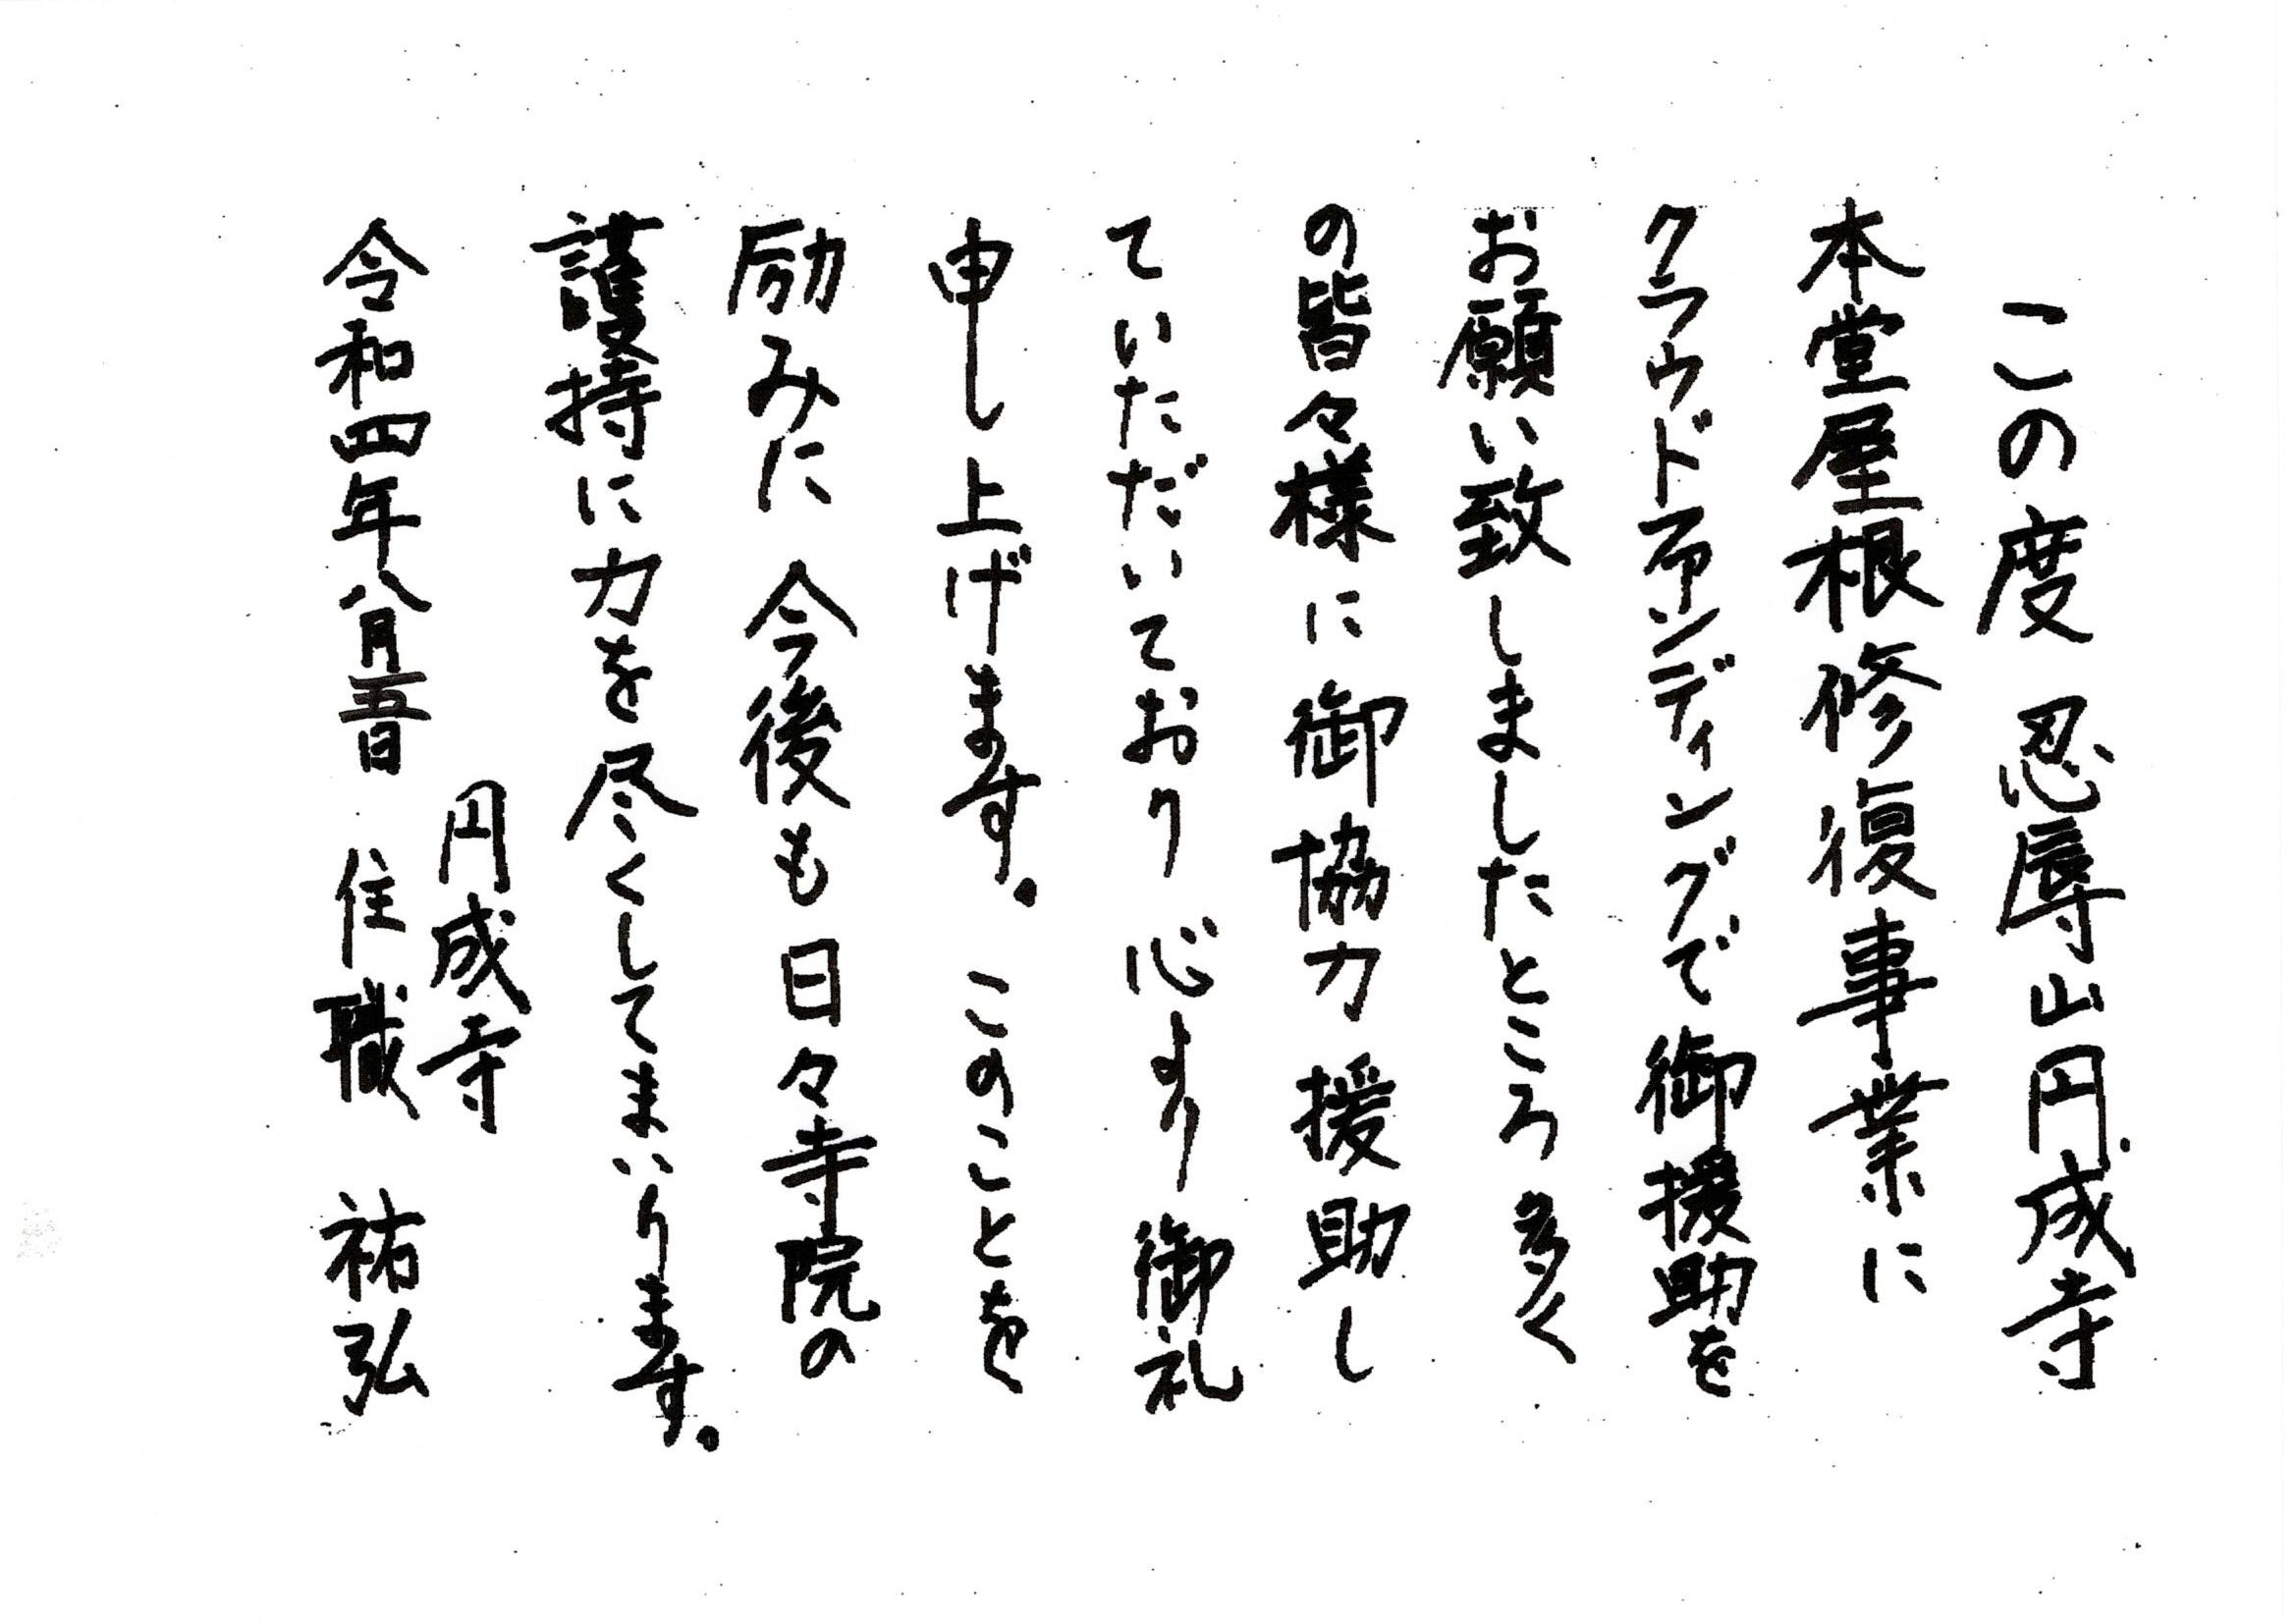 この度 忍辱山円成寺
本堂屋根修復事業に
クラウドファンディングで御援助を
お願い致しましたところ多く
の皆々様に御協力援助し
ていただいており心より御礼
申し上げます。このことを
励みに今後も日々寺院の
護持に力を尽くしてまいります。
円成寺
令和四年八月五日 住職 祐弘